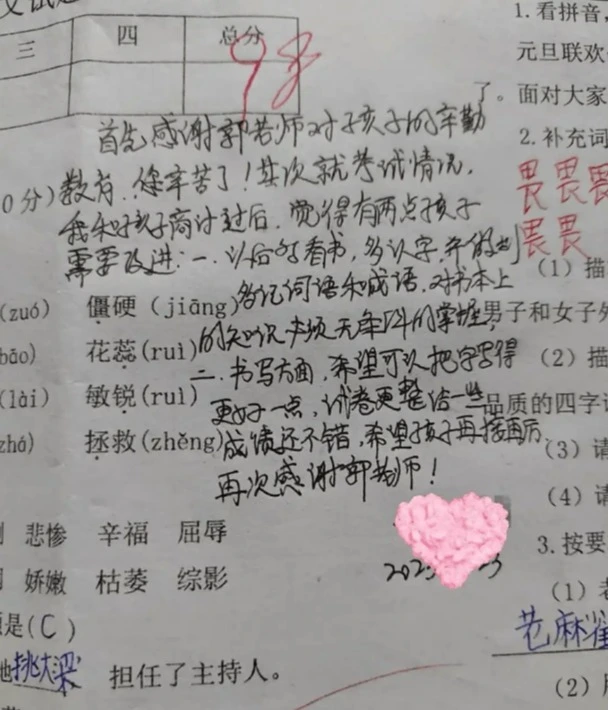 文试
三 四 总分
98
1.看拼音,
元旦联欢
了。面对大家
2.补充词
畏畏畏
畏畏
首先感谢郭老师对孩子的辛勤
教育,您辛苦了!其次就考试情况,
我和孩子商讨过后,觉得有两点孩子
需要改进:一、以后多看书,多认字,并做到
多记词语和成语,对书本上
的知识必须无条件的掌握,
二、书写方面,希望可以把字写得
更好一点,试卷更整洁一些
成绩还不错,希望孩子再接再厉
再次感谢郭老师!
0分)
(zuó) 僵硬(jiāng)
bāo) 花蕊(ruì)
(lài) 敏锐(ruì)
zhá) 拯救(zhěng)
悲惨 辛福 屈辱
娇嫩 枯萎 综影
是(C)
他挑大梁 担任了主持人。
(1)描
男子和女子外
(2)描
品质的四字
(3)请
(4)请
3.按要
(1)老
老麻雀
(2)